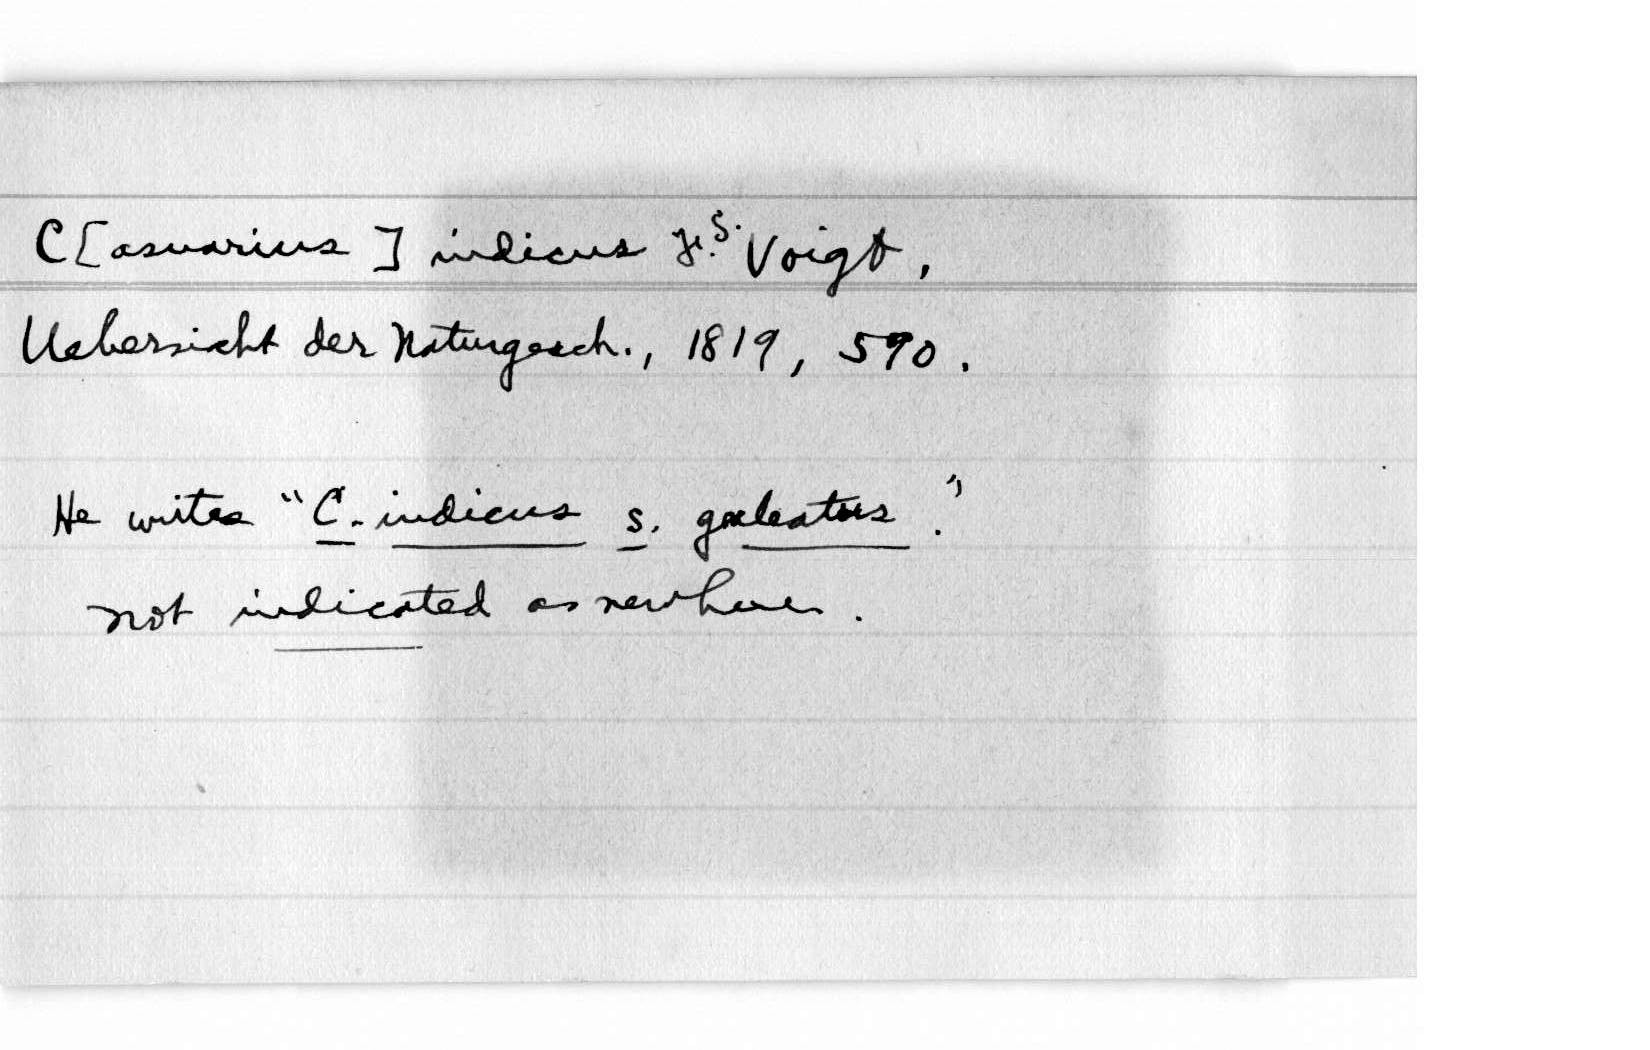 C[asuarius] indicus F. S. Voigt,
Uebersicht der Naturgesch., 1819, 590.
He writes "C. indicus s. galeatus."
not indicated as new here.